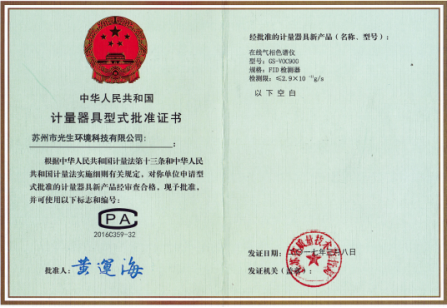 中华人民共和国
计量器具型式批准证书
苏州市光生环境科技有限公司:
根据中华人民共和国计量法第十三条和中华人民
共和国计量法实施细则有关规定，对你单位申请型
式批准的计量器具新产品经审查合格，现予批准，
并可使用以下标志和编号:
CPA
2016C359-32
批准人: 黄运海
经批准的计量器具新产品（名称、型号）:
在线气相色谱仪
型号: GS-VOC900
规格: FID检测器
检测限: ≤2.9×10 g/s
以下空白
发证日期: 一七年 八日
发证机关（盖章）: